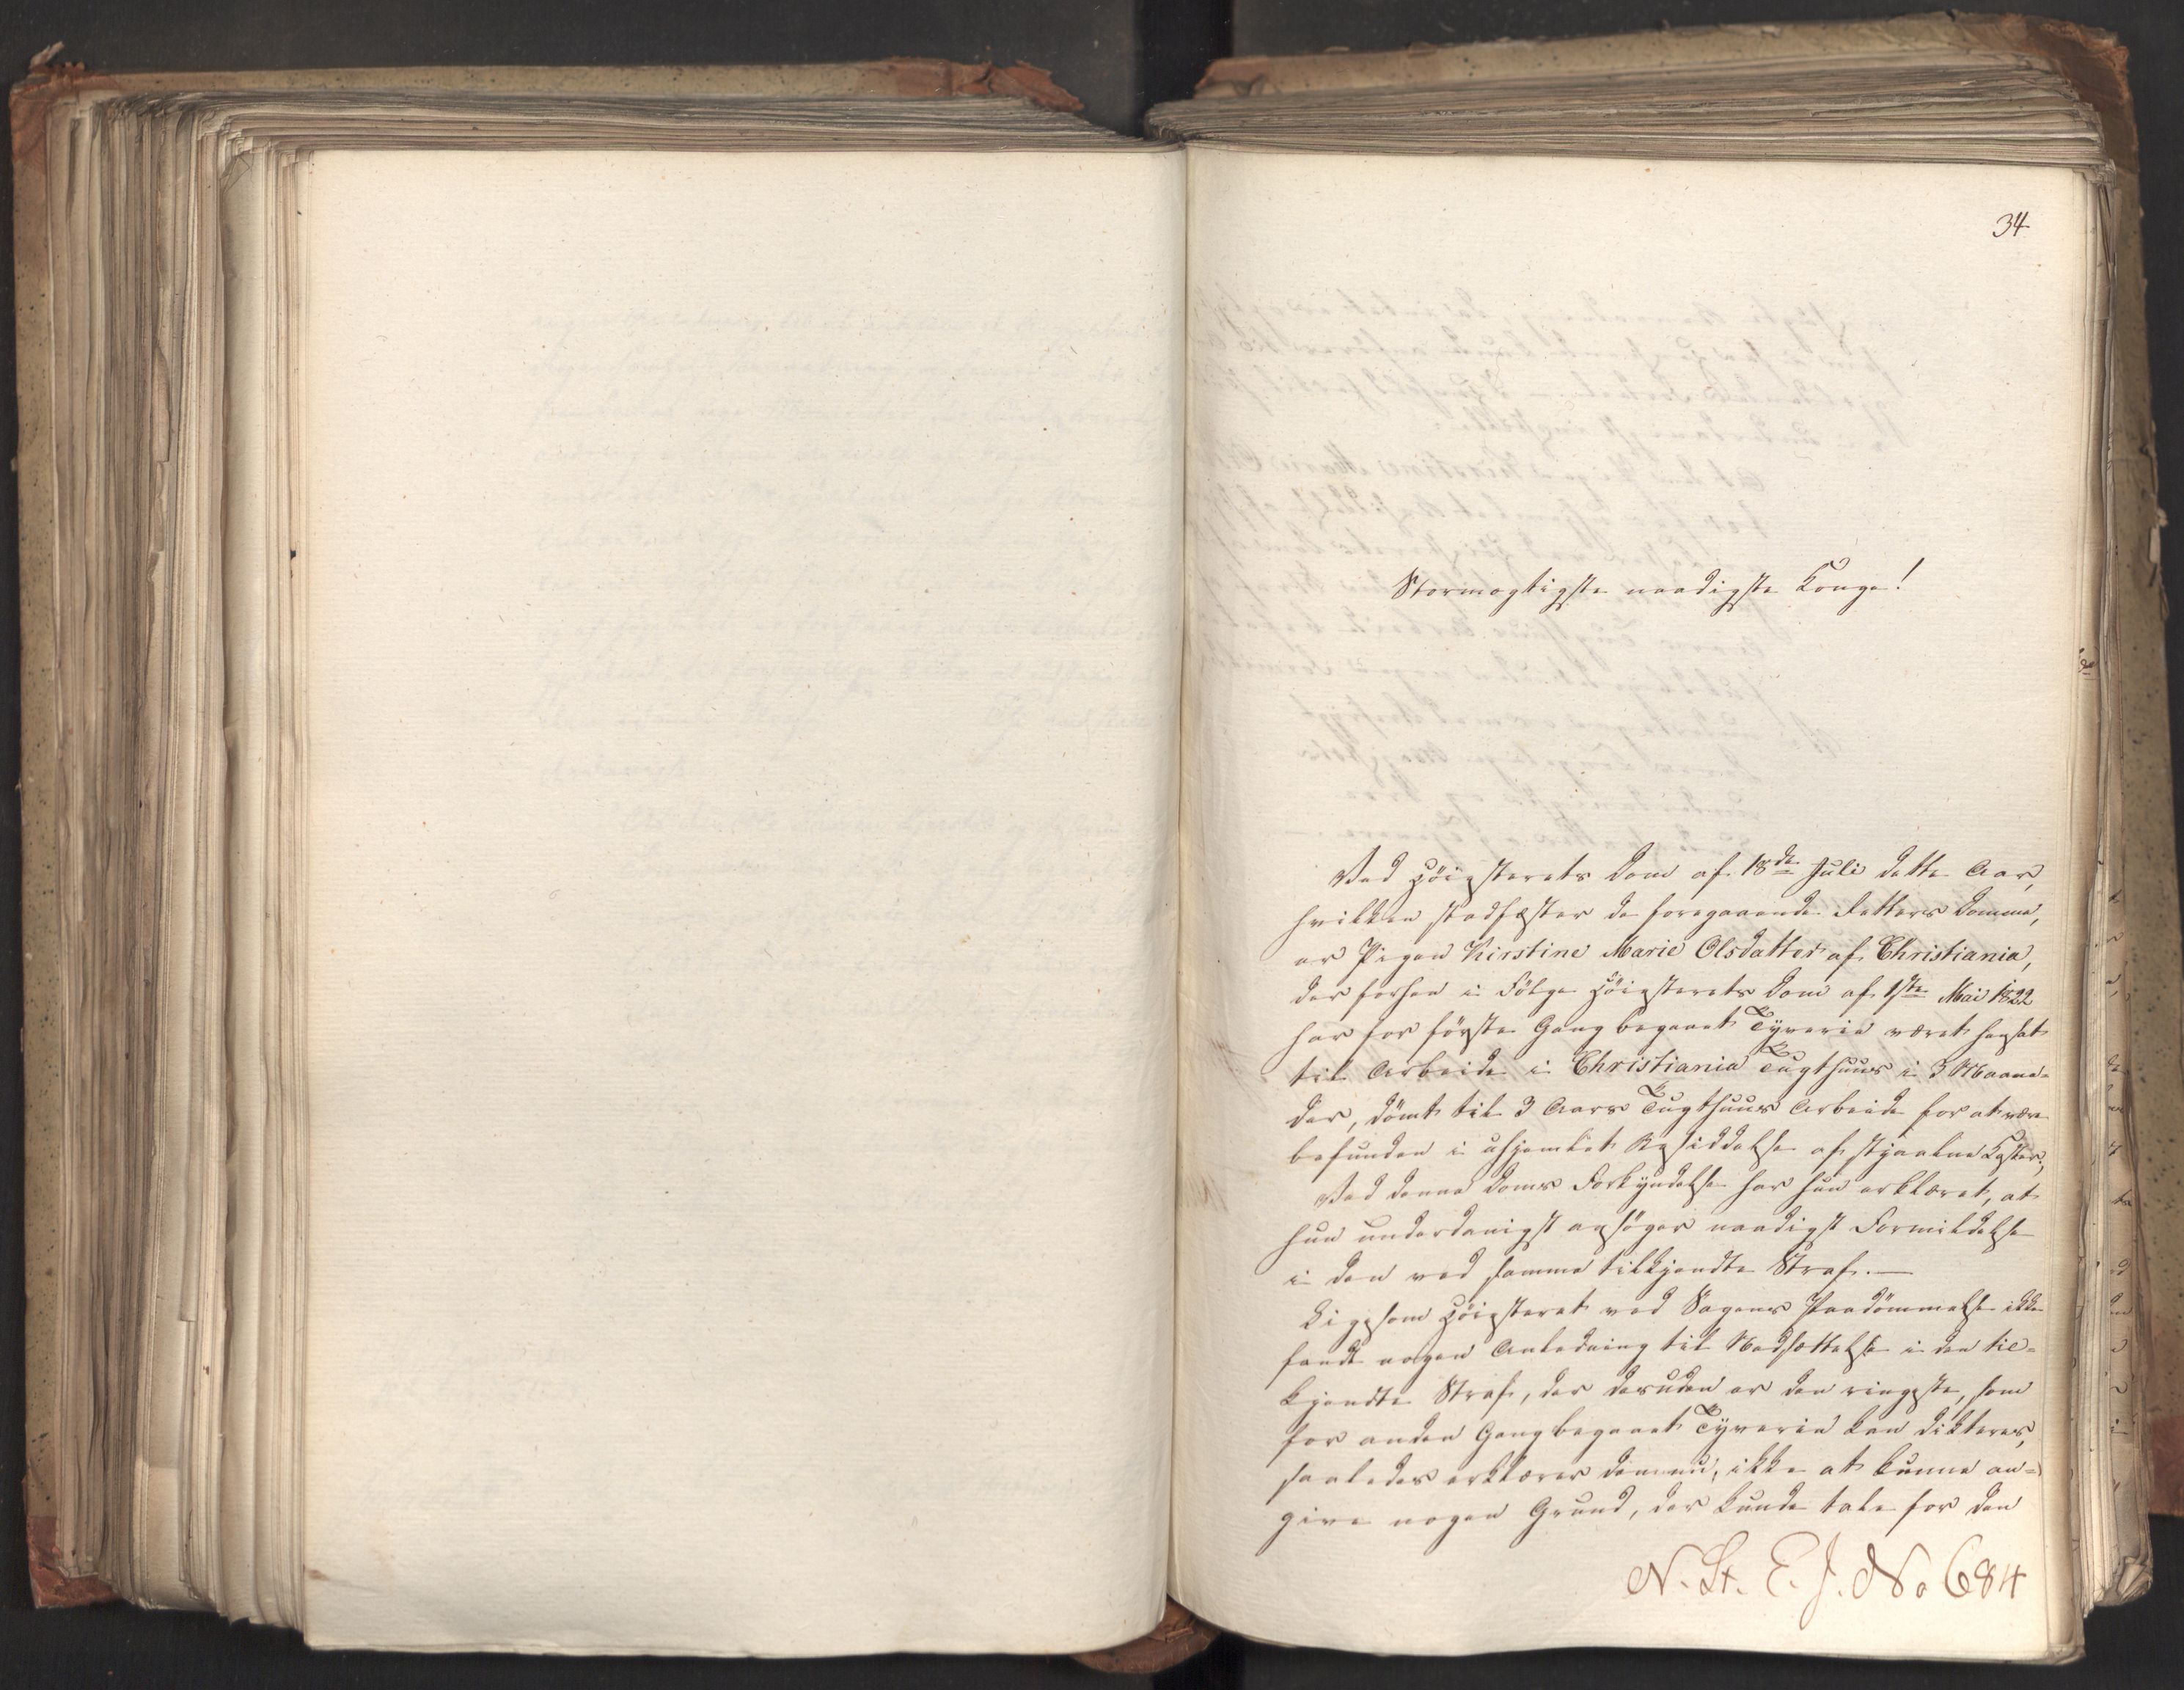 34
Stormægtigste naadigste Konge!
Ved Høiesterets Dom af 18de Juli dette Aar,
hvilken stadfæster de foregaaende Retters Domme,
er Pigen Kirstine Marie Olsdatter af Christiania,
der forhen i Følge Høiesterets Dom af 1ste Mai 1822
har for første Gang begaaet Tyverie været hensat
til Arbeide i Christiania Tugthuus i 3 Maane-
der, dømt til 3 Aars Tugthuus Arbeide for at være
befunden i uhjemlet Besiddelse af stjaalne Koster;
Ved denne Doms Forkyndelse har hun erklæret, at
hun underdanigst ansøger naadigst Formildelse
i den ved samme tilkjendte Straf.—
Ligesom Høiesteret ved Sagens Paadømmelse ikke
fandt nogen Anledning til Nedsættelse i den til-
kjendte Straf, der desuden er den ringeste, som
for anden Gang begaaet Tyverie kan dikteres,
saaledes erklærer den nu, ikke at kunne an-
give nogen Grund, der kunde tale for den
N. St. E. J. No 684